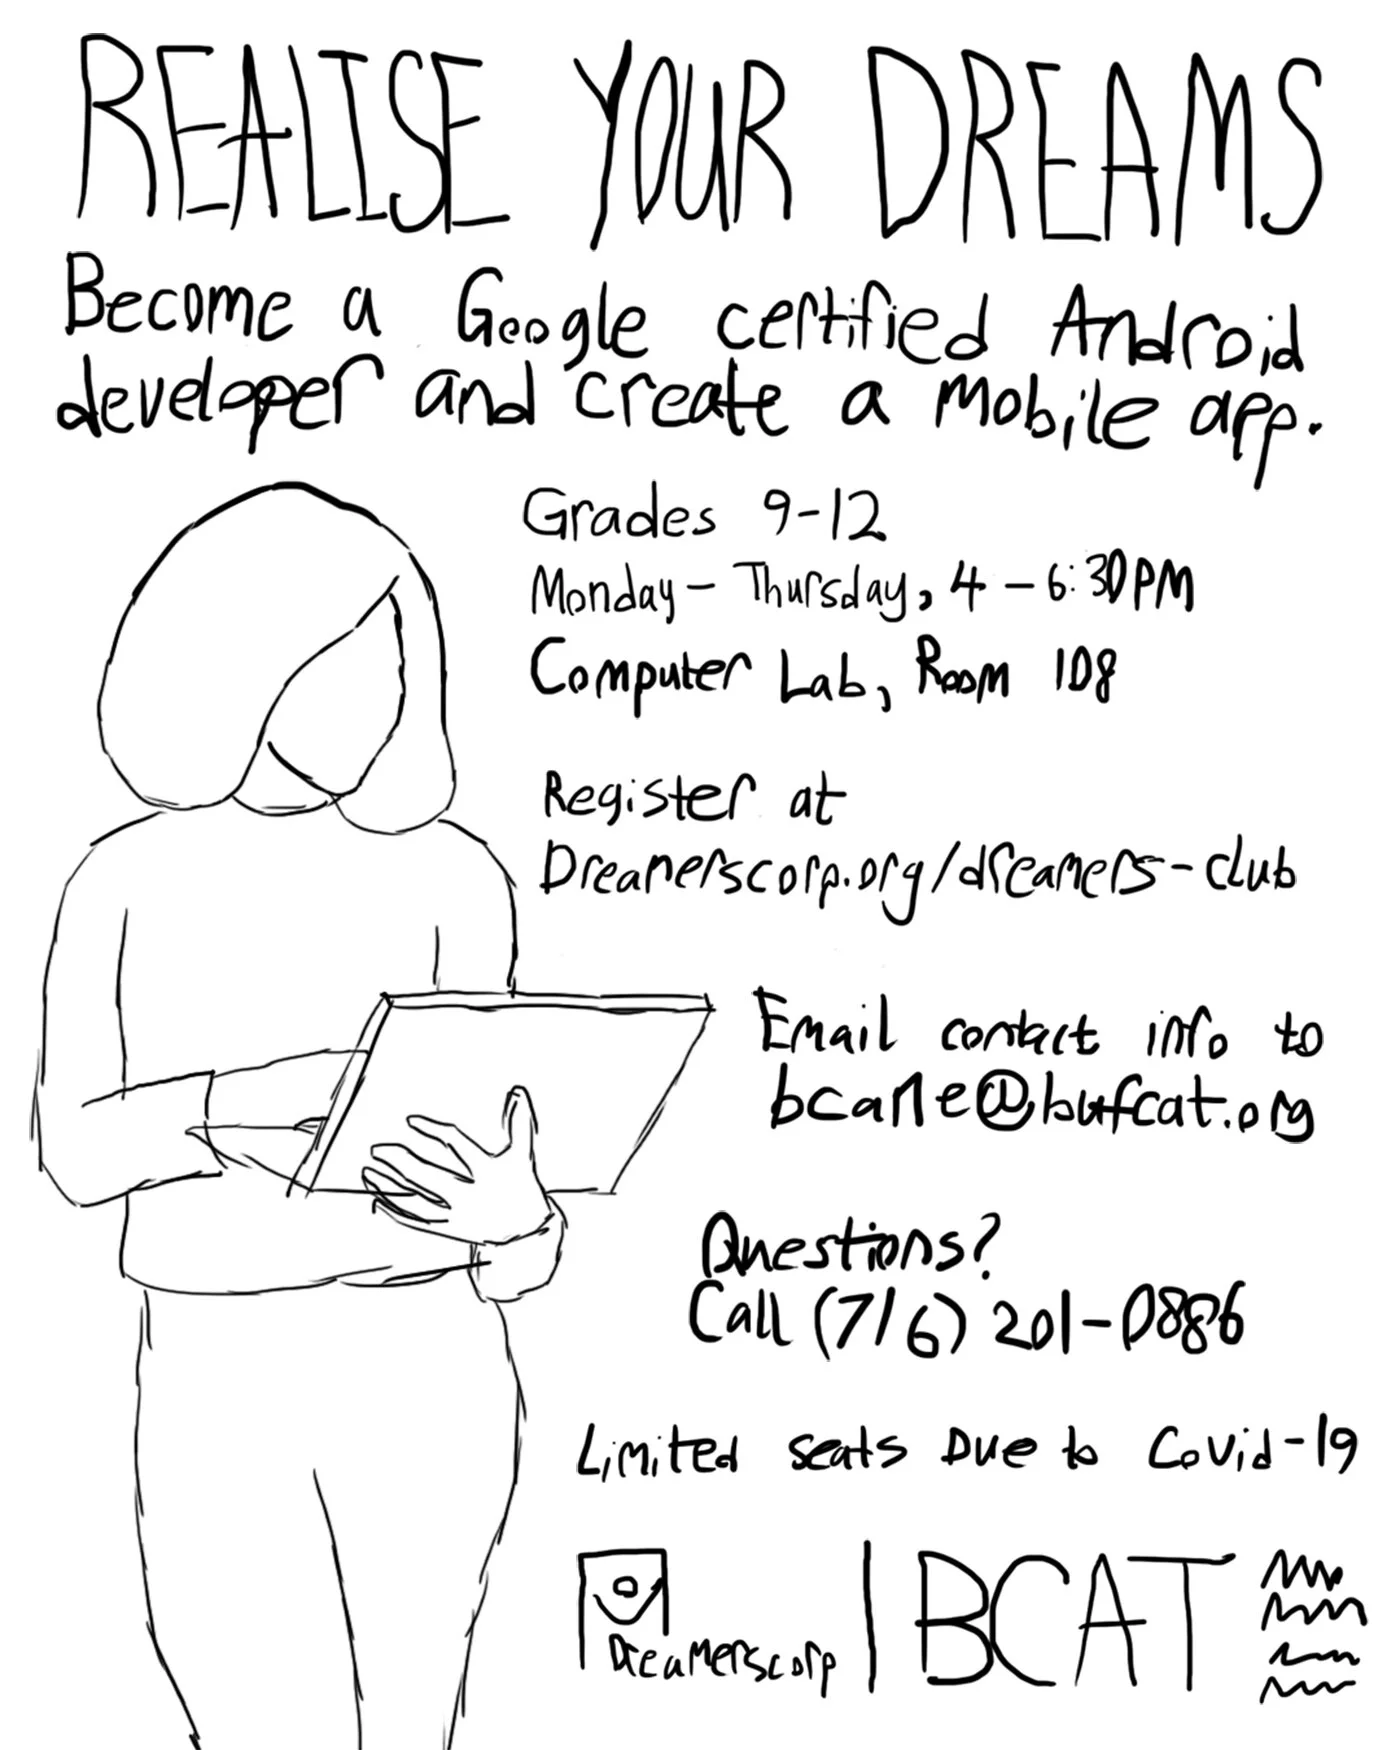 REALISE YOUR DREAMS
Become a Google certified Android
developer and create a mobile app.
Grades 9-12
Monday - Thursday, 4 - 6:30PM
Computer Lab, Room 108
Register at
Dreamerscorp.org/dreamers-club
Email contact info to
bcane@bufcat.org
Questions?
Call (716) 201-0886
Limited seats Due to Covid-19
Dreamerscorp | BCAT